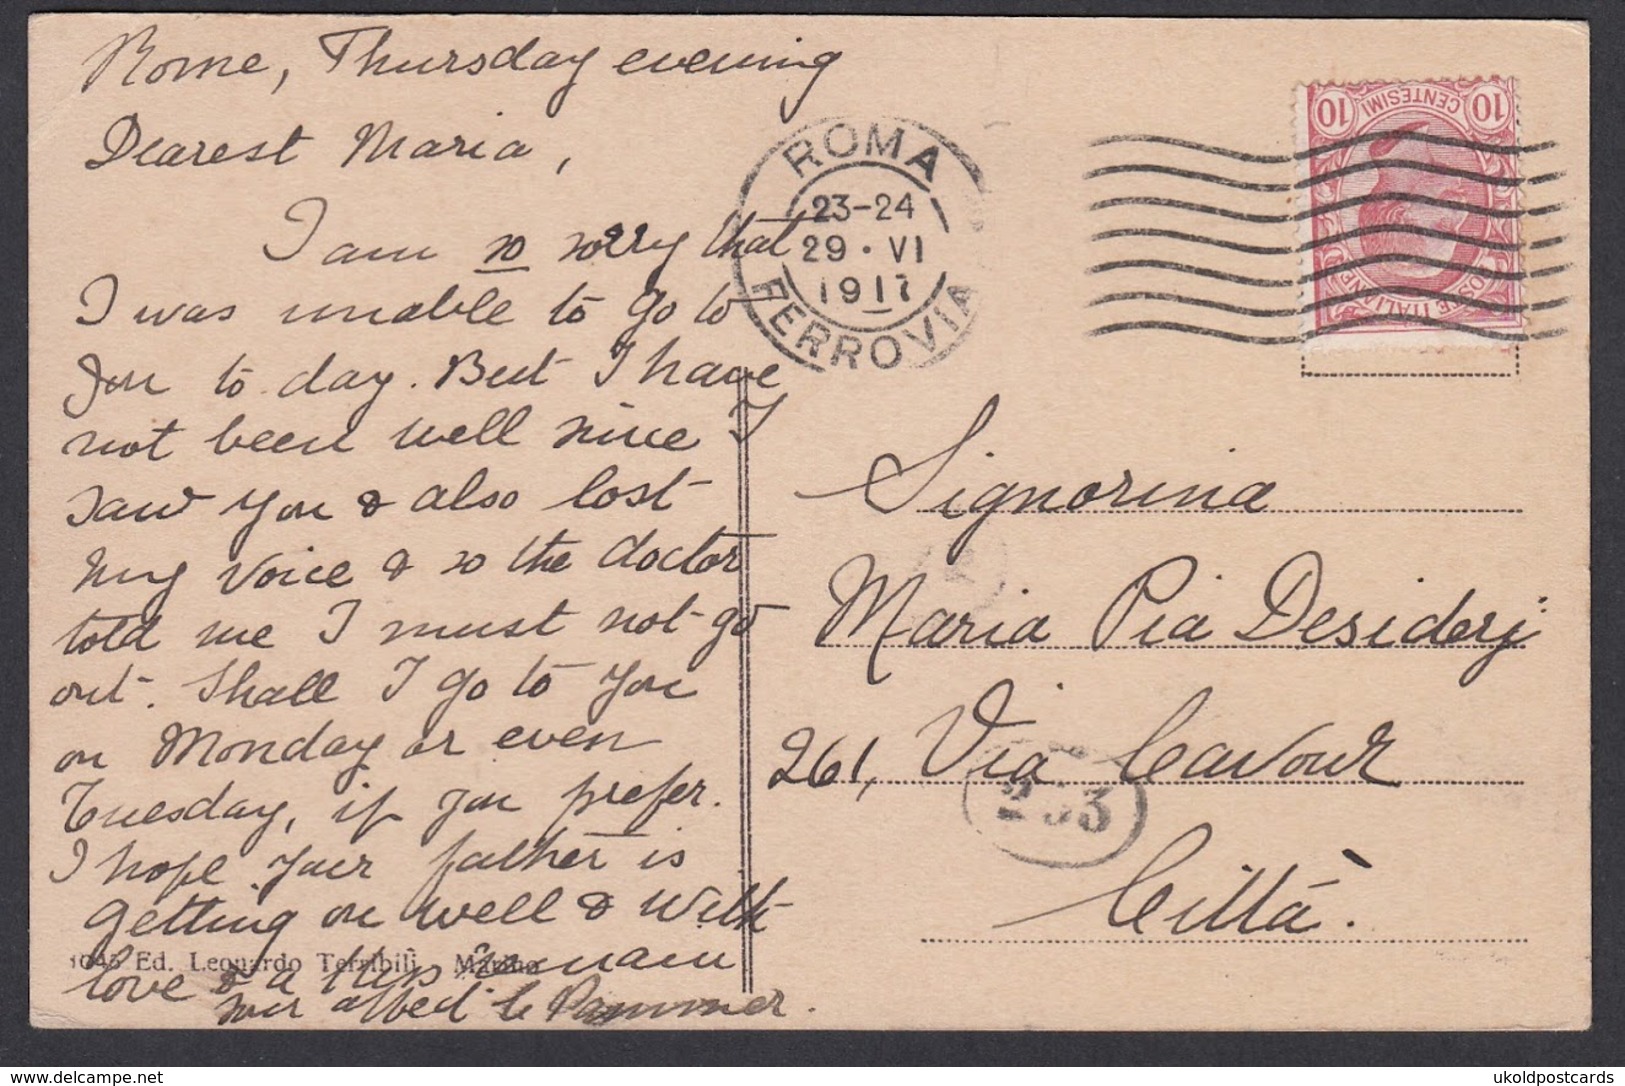 Rome, Thursday evening
Dearest Maria,
I am so sorry that
I was unable to go to
you to day. But I have
not been well since I
saw you & also lost
my voice & so the doctor
told me I must not go
out. Shall I go to you
on Monday or even
Tuesday, if you prefer.
I hope your father is
getting on well & with
love & a kiss remain
your affec'd
1045 Ed. Leonardo Terribili - Marino
ROMA
23-24
29 · VI
1917
FERROVIA
10 CENTESIMI 10
POSTE ITALIANE
Signorina
Maria Pia Desiderj
261, Via Cavour
Città.
253
ukoldpostcards
© www.delcampe.net